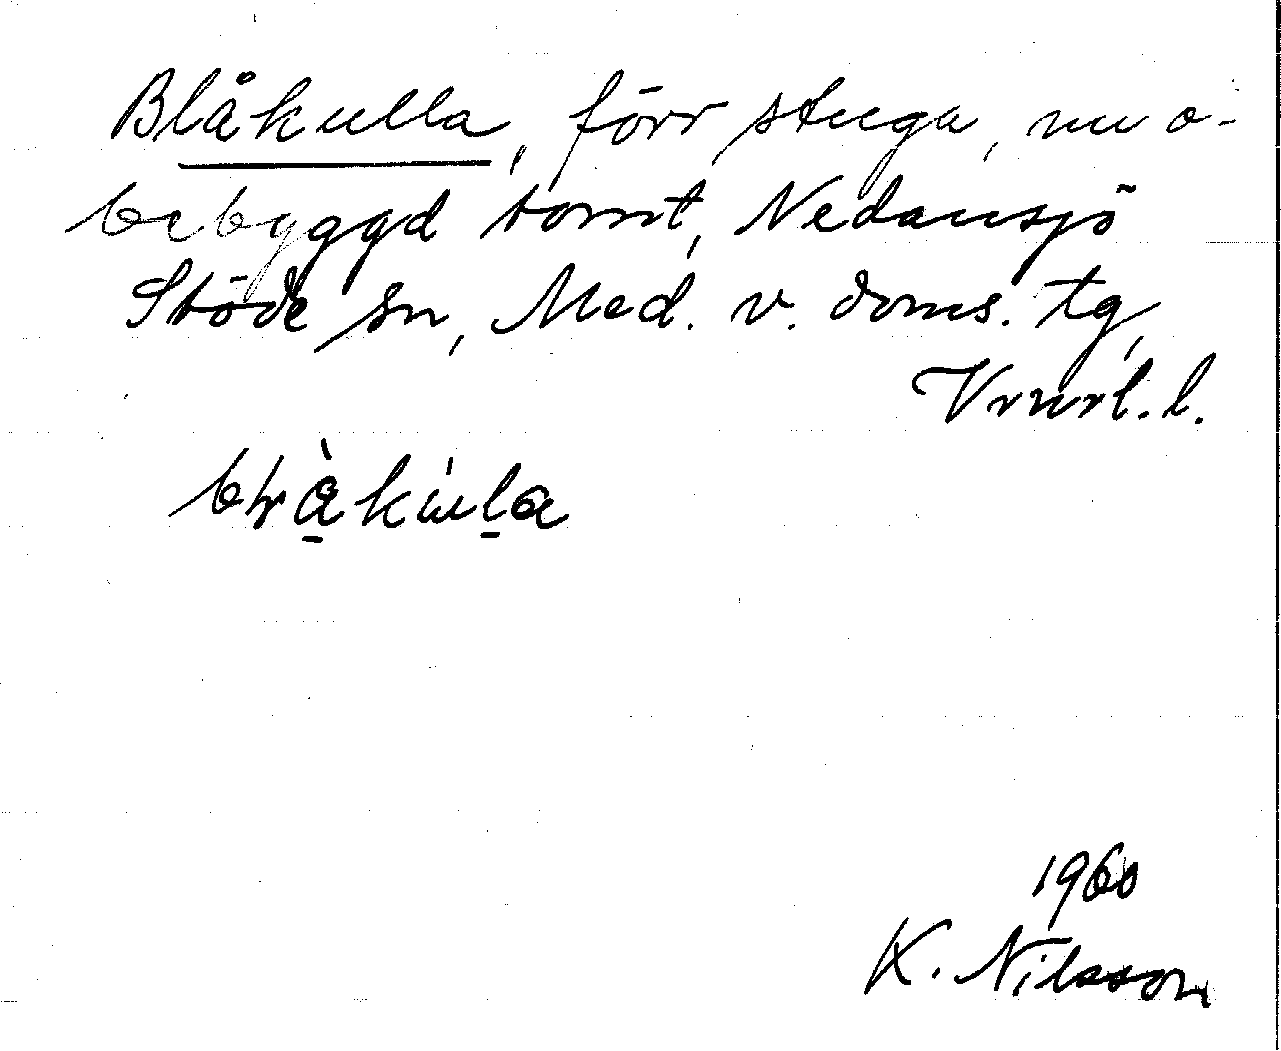 Blåkulla, förr stuga, nu o-
bebyggd tomt, Nedansjö
Stöde sn, Med. v. doms. tg,
Vnrl. l.
blåkùla
1960
K. Nilsson